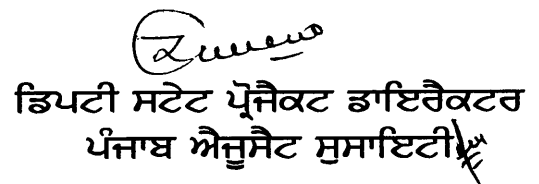 ਡਿਪਟੀ ਸਟੇਟ ਪ੍ਰੋਜੈਕਟ ਡਾਇਰੈਕਟਰ
ਪੰਜਾਬ ਐਜੂਸੈਟ ਸੁਸਾਇਟੀ